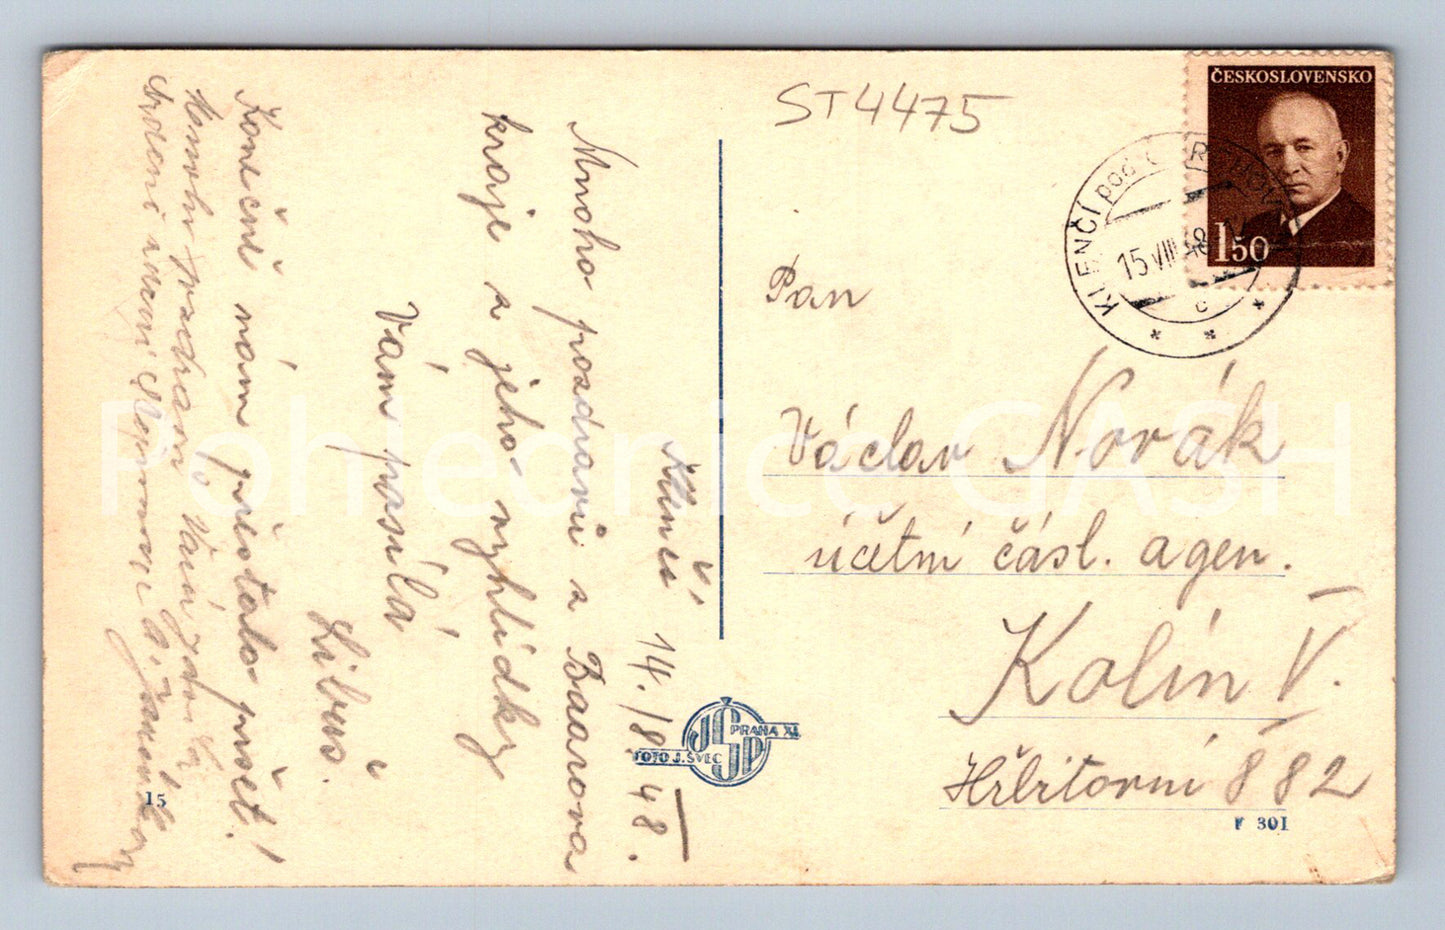 Klenčí, 14./8. 48.
Mnoho pozdravů z Baarova
kraje a jeho vyhlídky
Vám posílá
Libuš.
Konečně nám přestalo pršet!
pozdravů Vám
ST4475
ČESKOSLOVENSKO
1 50
KLENČÍ pod
15 VIII 48
c
Pan
Václav Novák
účetní část. agen.
Kolín V.
Hřbitovní 882
F 301
JŠP
PRAHA XI.
FOTO J. ŠVEC
15
Pohlednice GASH